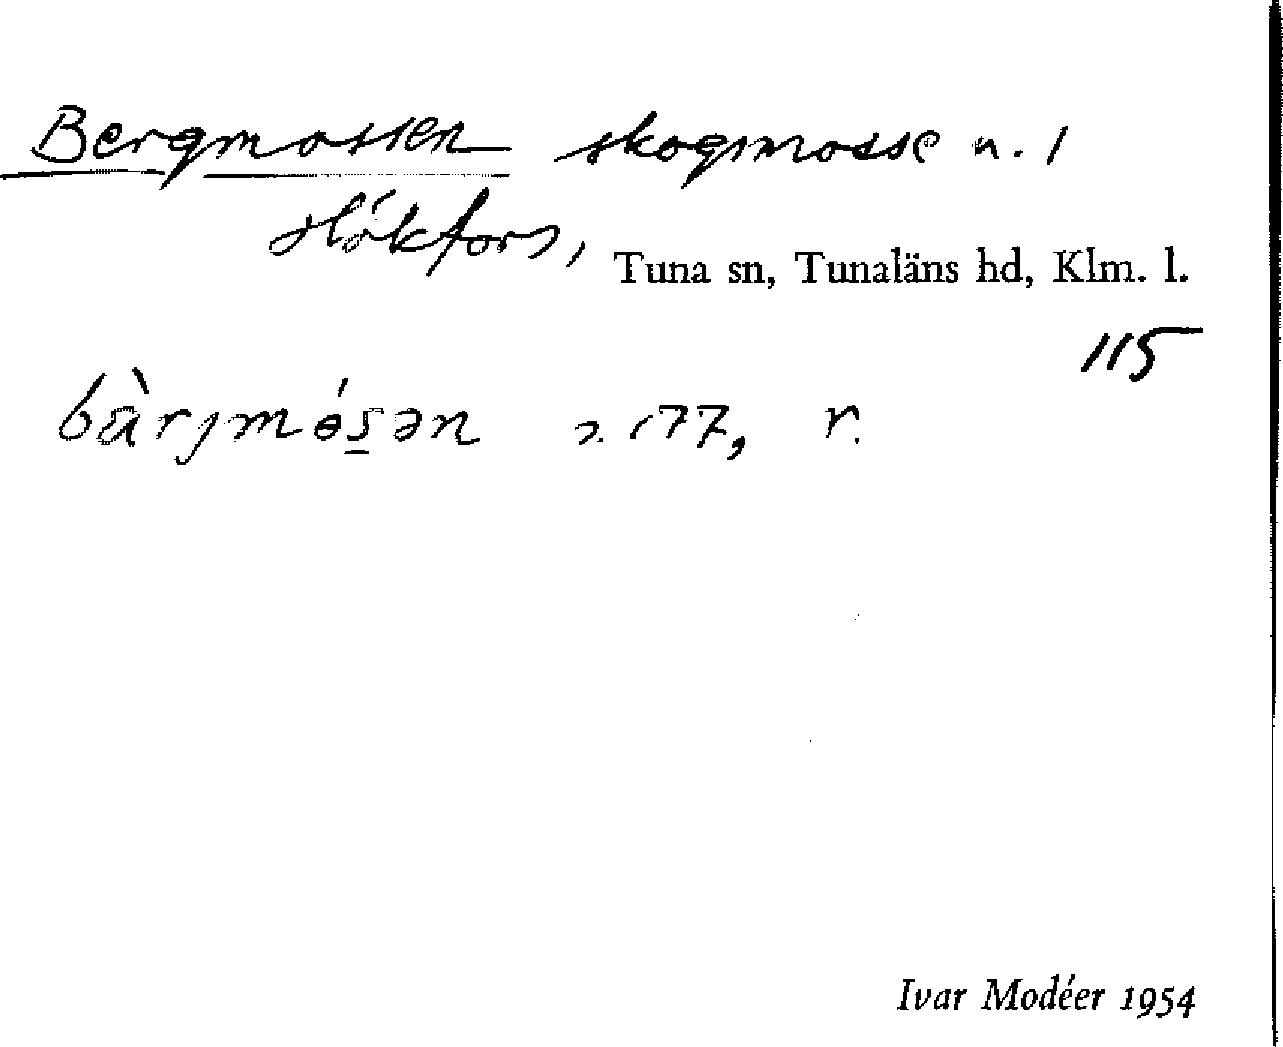 Bergmossen skogsmosse n. 1
Hökfors, Tuna sn, Tunaläns hd, Klm. l.
115
bàrjmósən 177, r.
Ivar Modéer 1954